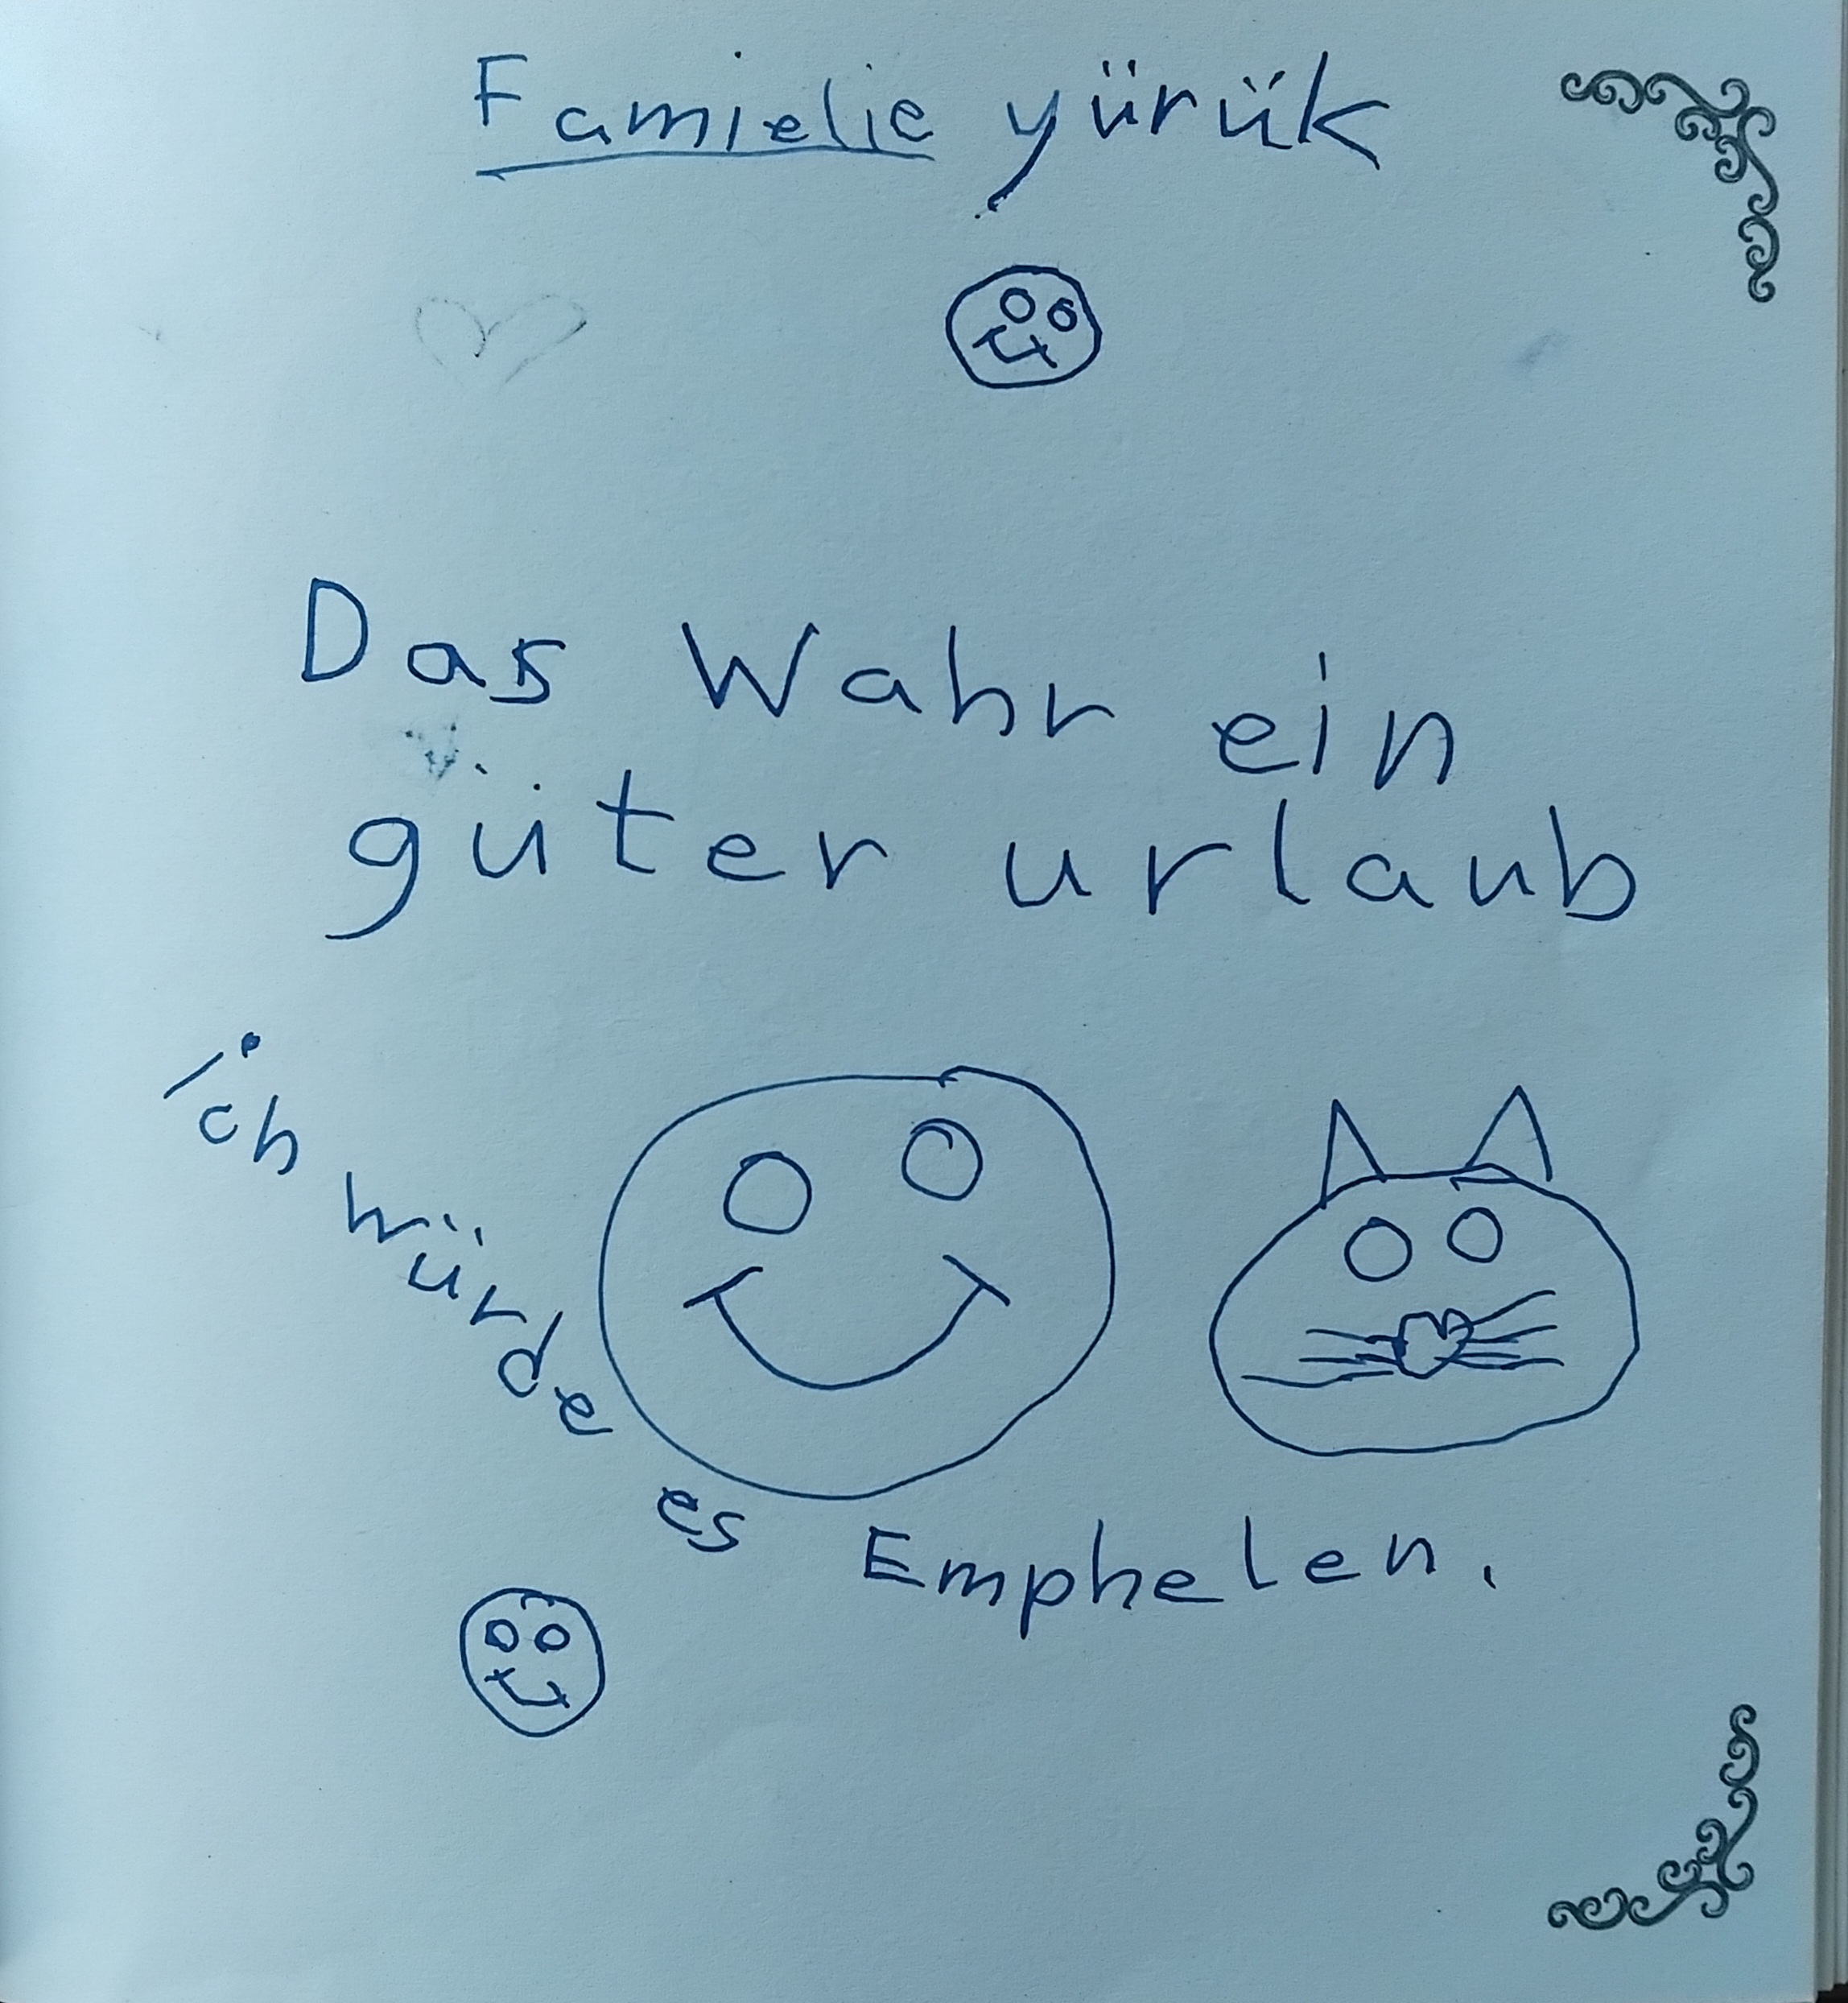 Famielie yürük
Das Wahr ein
güter urlaub
ich würde es Emphelen.